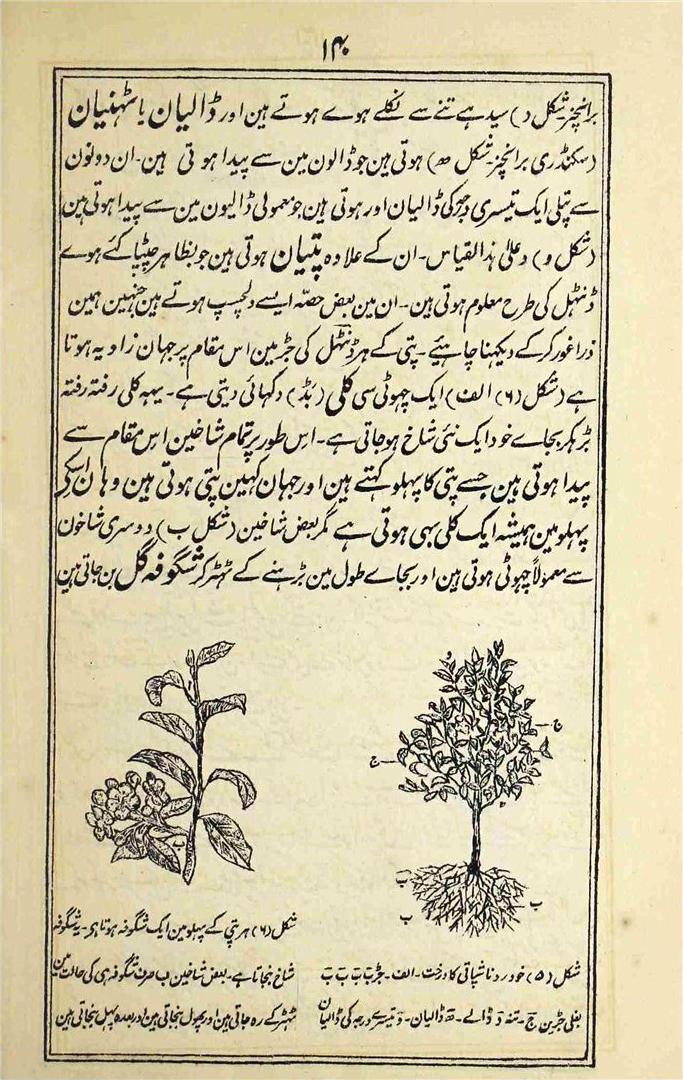 ۱۴۰
برانچز۔شکل د) سیدہے تنے سے نکلے ہوے ہوتے ہین اور ڈالیان یا ٹہنیان
(سکنڈری برانچز۔شکل ھ) ہوتی ہین جو ڈالون مین سے پیدا ہوتی ہین۔ ان دونون
سے پتلی ایک تیسری درجہ کی ڈالیان اور ہوتی ہین جو معمولی ڈالیون مین سے پیدا ہوتی ہین
(شکل و) و علیٰ ہذالقیاس۔ ان کے علاوہ پتیان ہوتی ہین جو بظاہر چپٹیا کئے ہوے
ڈنٹہل کی طرح معلوم ہوتی ہین۔ ان مین بعض حصّہ ایسے دلچسپ ہوتے ہین جنہین ہمین
ذرا غور کرکے دیکہنا چاہئیے۔ پتی کے ہر ڈنٹہل کی جڑ مین اس مقام پر جہان زاویہ ہوتا
ہے (شکل (۶) الف) ایک چہوٹی سی کلی (بَڈ) دکہائی دیتی ہے۔ یہہ کلی رفتہ رفتہ
بڑہکر بجاے خود ایک نئی شاخ ہوجاتی ہے۔ اس طور پر تمام شاخین اس مقام سے
پیدا ہوتی ہین جسے پتی کا پہلو کہتے ہین اور جہان کہین پتی ہوتی ہین وہان اسکے
پہلو مین ہمیشہ ایک کلی بہی ہوتی ہے مگر بعض شاخین (شکل ب) دوسری شاخون
سے معمولاً چہوٹی ہوتی ہین اور بجاے طول مین بڑہنے کے ٹہٹر کر شگوفہ گل بن جاتی ہین
ج
ج
ب
ب
ب
ب
شکل (۵) خود رو ناشپاتی کا درخت۔ الف۔ جڑ ب ب ب ب
بغلی جڑین ج۔ تنہ د ڈالے۔ ھ ڈالیان۔ و تیسرے درجہ کی ڈالیان
ب
شکل (۶) ہر پتی کے پہلو مین ایک شگوفہ ہوتا ہی۔ یہ شگوفہ
شاخ بنجاتا ہے۔ بعض شاخین ب صرف شگوفہ ہی کی حالت مین
ٹہٹر کے رہ جاتی ہین اور پہول بنجاتی ہین اور بعدہ پہل بنجاتی ہین